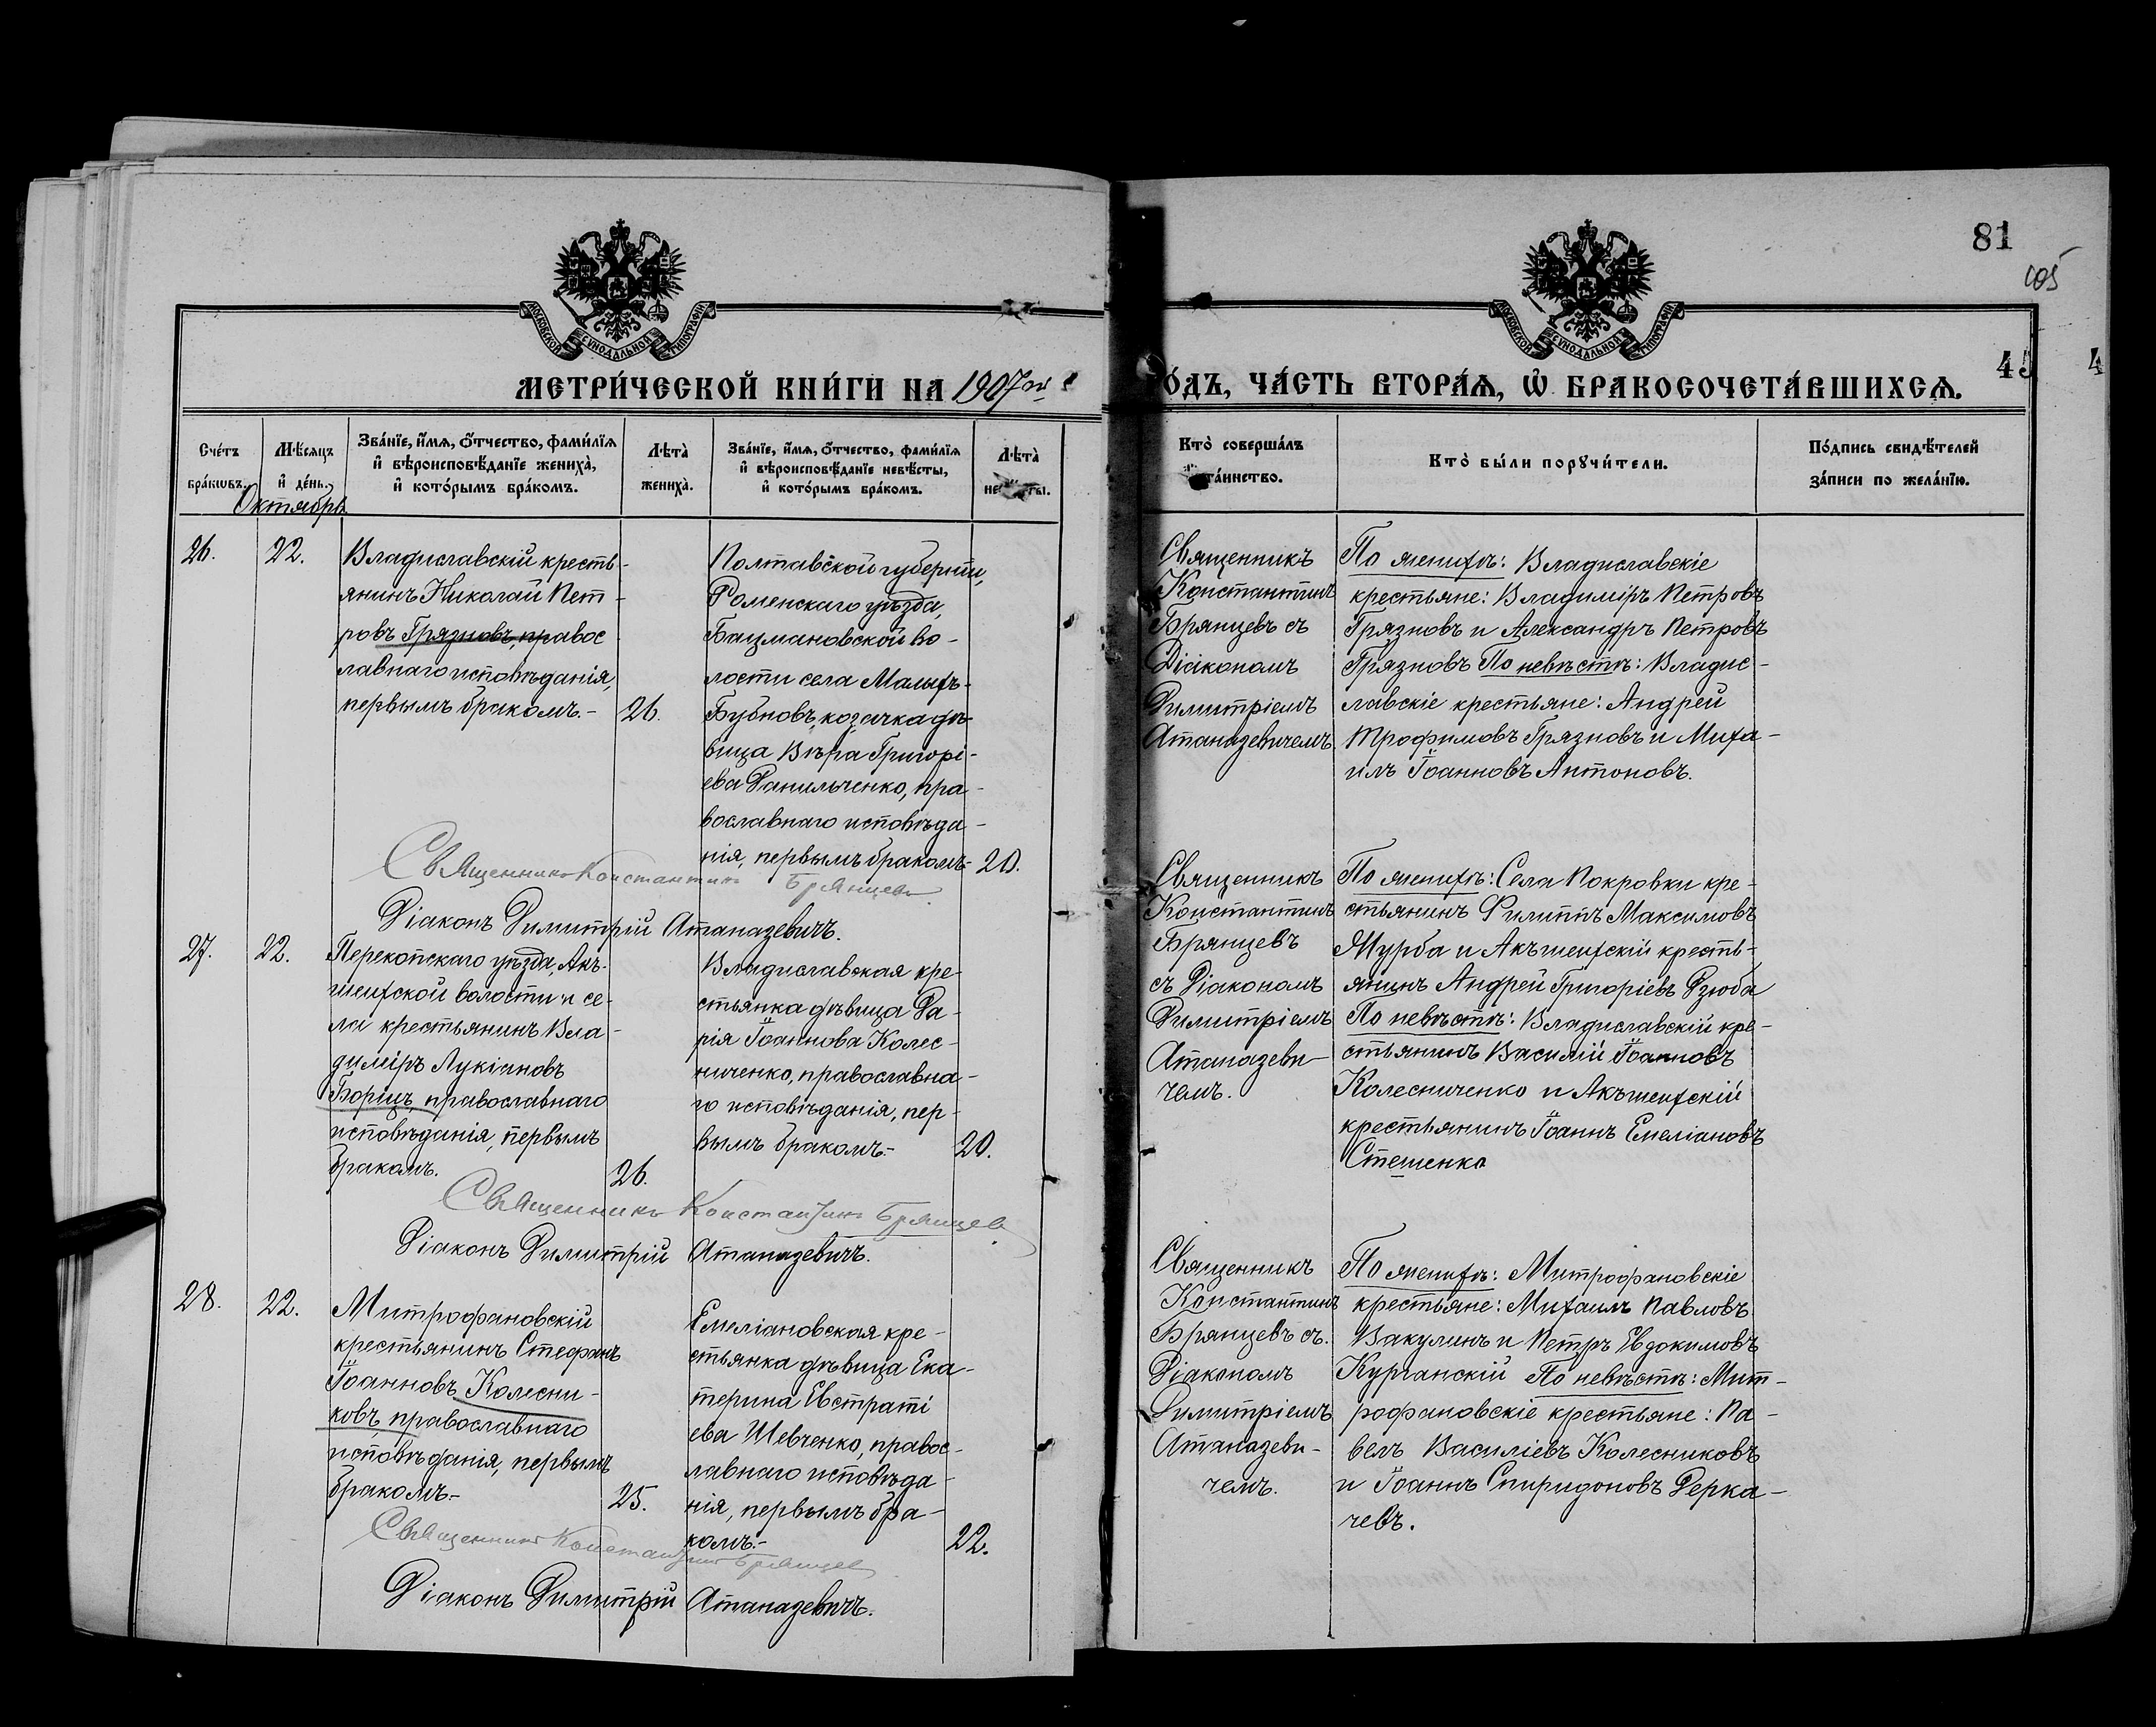 81
105
МОСКОВСКОЙ СѴНОДАЛЬНОЙ ТИПОГРАФІИ
МОСКОВСКОЙ СѴНОДАЛЬНОЙ ТИПОГРАФІИ
45
4
МЕТРИ́ЧЕСКОЙ КНИ́ГИ НА 1907ой
О́ДЪ, ЧА́СТЬ ВТОРА́Ѧ, Ѽ БРАКОСОЧЕТА́ВШИХСѦ.
Сче́тъ
бра́кѡвъ.
Мѣ́сѧцъ
и҆ де́нь.
Зва́нїе, и҆́мѧ, ѻ҆́тчество, фами́лїѧ
и҆ вѣроисповѣ́данїе жениха̀,
и҆ кото́рымъ бра́комъ.
Лѣта̀
жениха̀.
Зва́нїе, и҆́мѧ, ѻ҆́тчество, фами́лїѧ
и҆ вѣроисповѣ́данїе невѣ́сты,
и҆ кото́рымъ бра́комъ.
Лѣта̀
не
ты.
Кто̀ соверша́лъ
та́инство.
Кто̀ бы́ли порꙋчи́тели.
По́дпись свидѣ́телей
за́писи по жела́нїю.
Октябрь
26.
22.
Владиславскій кресть-
янинъ Николай Пет-
ровъ Грязновъ, правос
лавнаго исповѣданія,
первымъ бракомъ.-
26.
Полтавской губерніи,
Роменскаго уѣзда,
Бацмановской во-
лости села Малыхъ-
Бубновъ, козачка дѣ-
вица Вѣра Григорі-
ева Данильченко, пра-
вославнаго исповѣда-
нія, первымъ бракомъ-
20.
Священникъ
Константинъ
Брянцевъ съ
Діакономъ
Димитріемъ
Атаназевичемъ
По женихѣ: Владиславскіе
крестьяне: Владиміръ Петровъ
Грязновъ и Александръ Петровъ
Грязновъ По невѣстѣ: Владис-
лавскіе крестьяне: Андрей
Трофимовъ Грязновъ и Миха-
илъ Іоанновъ Антоновъ.
Священникъ Константинъ Брянцевъ
Діаконъ Димитрій Атаназевичъ.
27.
22.
Перекопскаго уѣзда, Акъ-
шеихской волости и се-
ла крестьянинъ Вла-
диміръ Лукіановъ
Борщъ, православнаго
исповѣданія, первымъ
бракомъ.
26.
Владиславская кре-
стьянка дѣвица Да-
рія Іоаннова Колес-
ниченко, православна-
го исповѣданія, пер-
вымъ бракомъ.-
20.
Священникъ
Константинъ
Брянцевъ
съ Діакономъ
Димитріемъ
Атаназеви-
чемъ.
По женихѣ: Села Покровки кре-
стьянинъ Филиппъ Максимовъ
Журба и Акъшеихскій кресть-
янинъ Андрей Григоріевъ Дзюба
По невѣстѣ: Владиславскій кре-
стьянинъ Василій Іоанновъ
Колесниченко и Акъшеихскій
крестьянинъ Іоаннъ Емеліановъ
Стешенко
Священникъ Константинъ Брянцевъ
Діаконъ Димитрій Атаназевичъ.
28.
22.
Митрофановскій
крестьянинъ Стефанъ
Іоанновъ Колесни-
ковъ, православнаго
исповѣданія, первымъ
бракомъ.-
25.
Емеліановская кре-
стьянка дѣвица Ека-
терина Евстраті
ева Шевченко, правос-
лавнаго исповѣда-
нія, первымъ бра-
комъ.-
22.
Священникъ
Константинъ
Брянцевъ съ.
Діакономъ
Димитріемъ
Атаназеви-
чемъ.
По женихѣ: Митрофановскіе
крестьяне: Михаилъ Павловъ
Вакулинъ и Петръ Евдокимовъ
Курганскій По невѣстѣ: Мит-
рофановскіе крестьяне: Па-
велъ Василіевъ Колесниковъ
и Іоаннъ Спиридоновъ Дерка-
чевъ.
Священникъ Константинъ Брянцевъ
Діаконъ Димитрій Атаназевичъ.